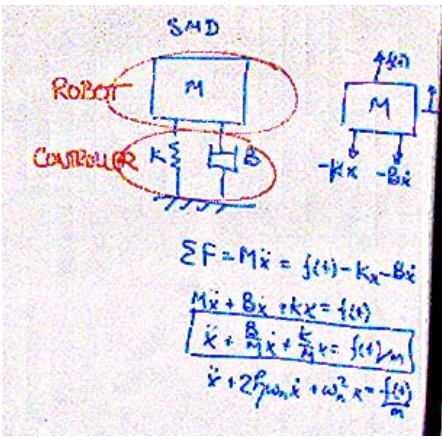 SMD
ROBOT
M
CONTROLLER
K
B
f(t)
M
-Kx -Bẋ
ΣF = Mẍ = f(t) - Kx - Bẋ
Mẍ + Bẋ + Kx = f(t)
ẍ + B/M ẋ + K/M x = f(t)/m
ẍ + 2ζωₙẋ + ωₙ² x = f(t)/m